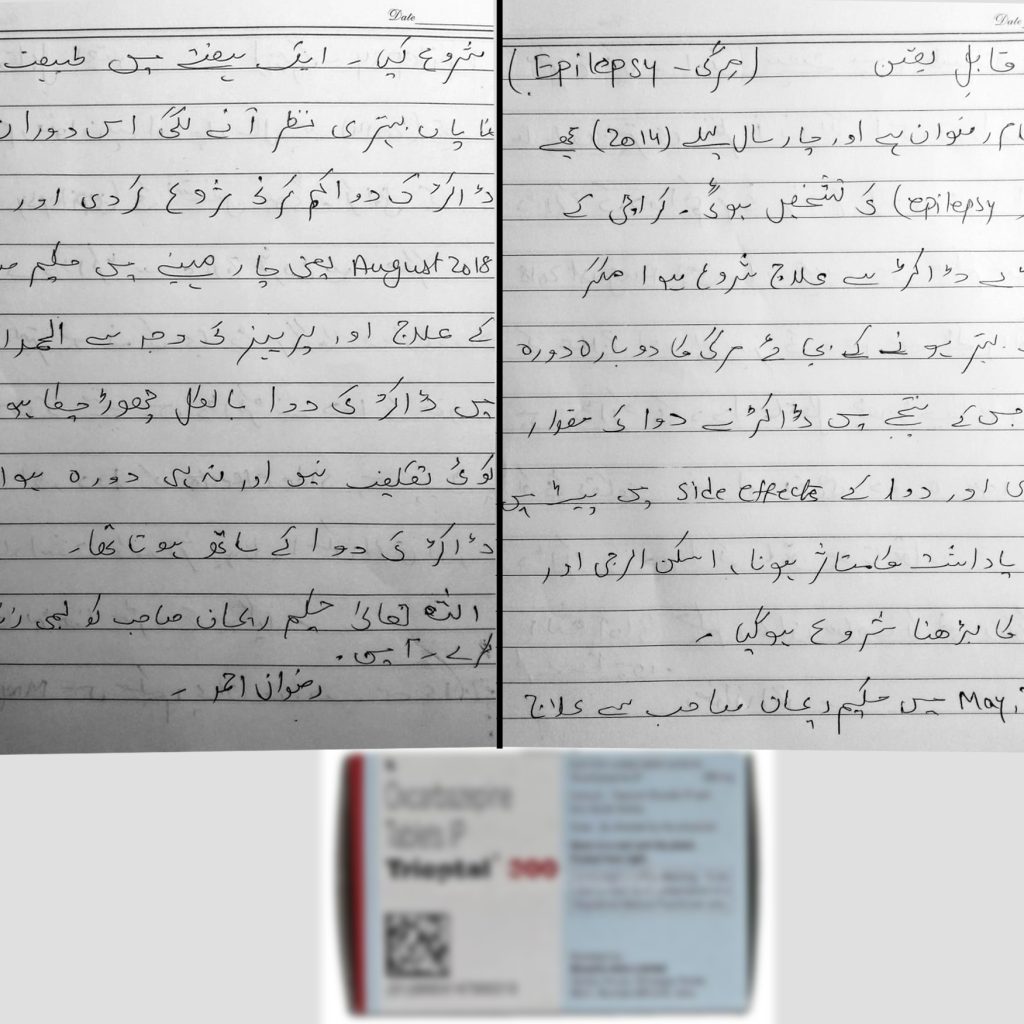 Date
قابل یقین (مرگی - Epilepsy)
نام رضوان ہے اور چار سال پہلے (2014) مجھے
epilepsy) کی تشخیص ہوئی۔ کراچی کے
ڈاکٹر سے علاج شروع ہوا مگر
بہتر ہونے کے بجائے مرگی کا دوبارہ دورہ
جس کے نتیجے میں ڈاکٹر نے دوا کی مقدار
اور دوا کے side effects میں پیٹ میں
یاداشت کا متاثر ہونا، اسکن الرجی اور
کا بڑھنا شروع ہوگیا ۔
May میں حکیم ریحان صاحب سے علاج
Date
شروع کیا ۔ ایک ہفتے میں طبیعت
نمایاں بہتری نظر آنے لگی اس دوران
ڈاکٹر کی دوا کم کرنی شروع کردی اور
August 2018 یعنی چار مہینے میں حکیم
کے علاج اور پرہیز کی وجہ سے الحمد
میں ڈاکٹر کی دوا بالکل چھوڑ چکا ہو
کوئی تکلیف نہیں اور نہ ہی دورہ ہوا
ڈاکٹر کی دوا کے ساتھ ہوتا تھا۔
اللہ تعالیٰ حکیم ریحان صاحب کو لمبی
کرے ۔ آمین ۔
رضوان احمد ۔
Oxcarbazepine
Tablets IP
Trioptal 300